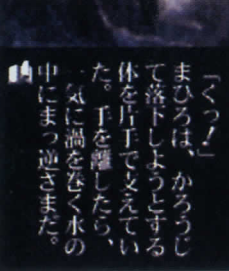 「くっ！」
まひろは、かろうじ
て落下しようとする
体を片手で支えてい
た。手を離したら、
一気に渦を巻く水の
中にまっ逆さまだ。